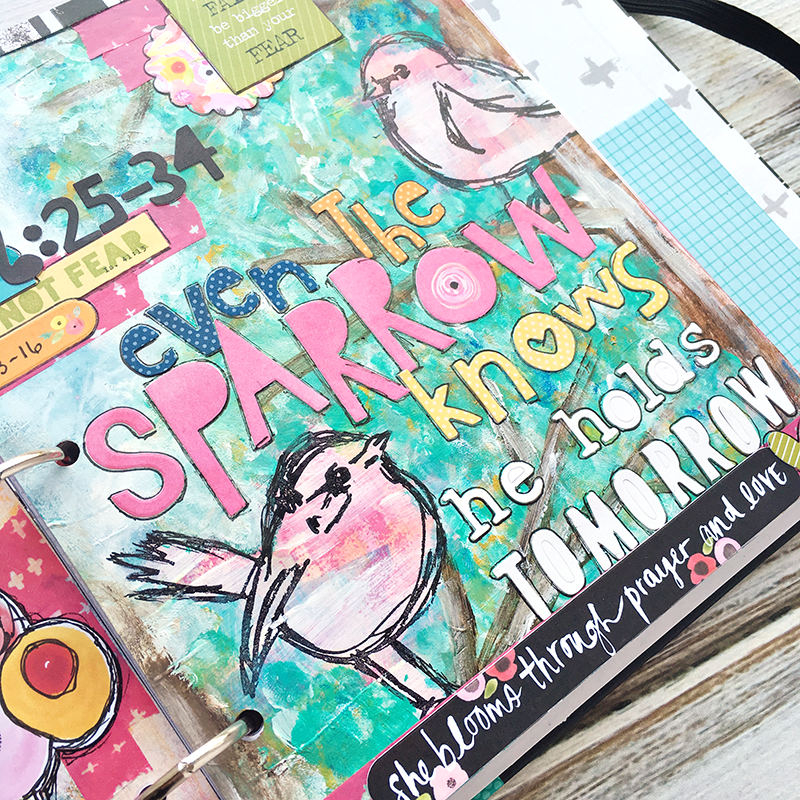 be bigger
than your
FEAR
6:25-34
NOT FEAR
3-16
even The
SPARROW
knows
he holds
TOMORROW
she blooms through prayer and love